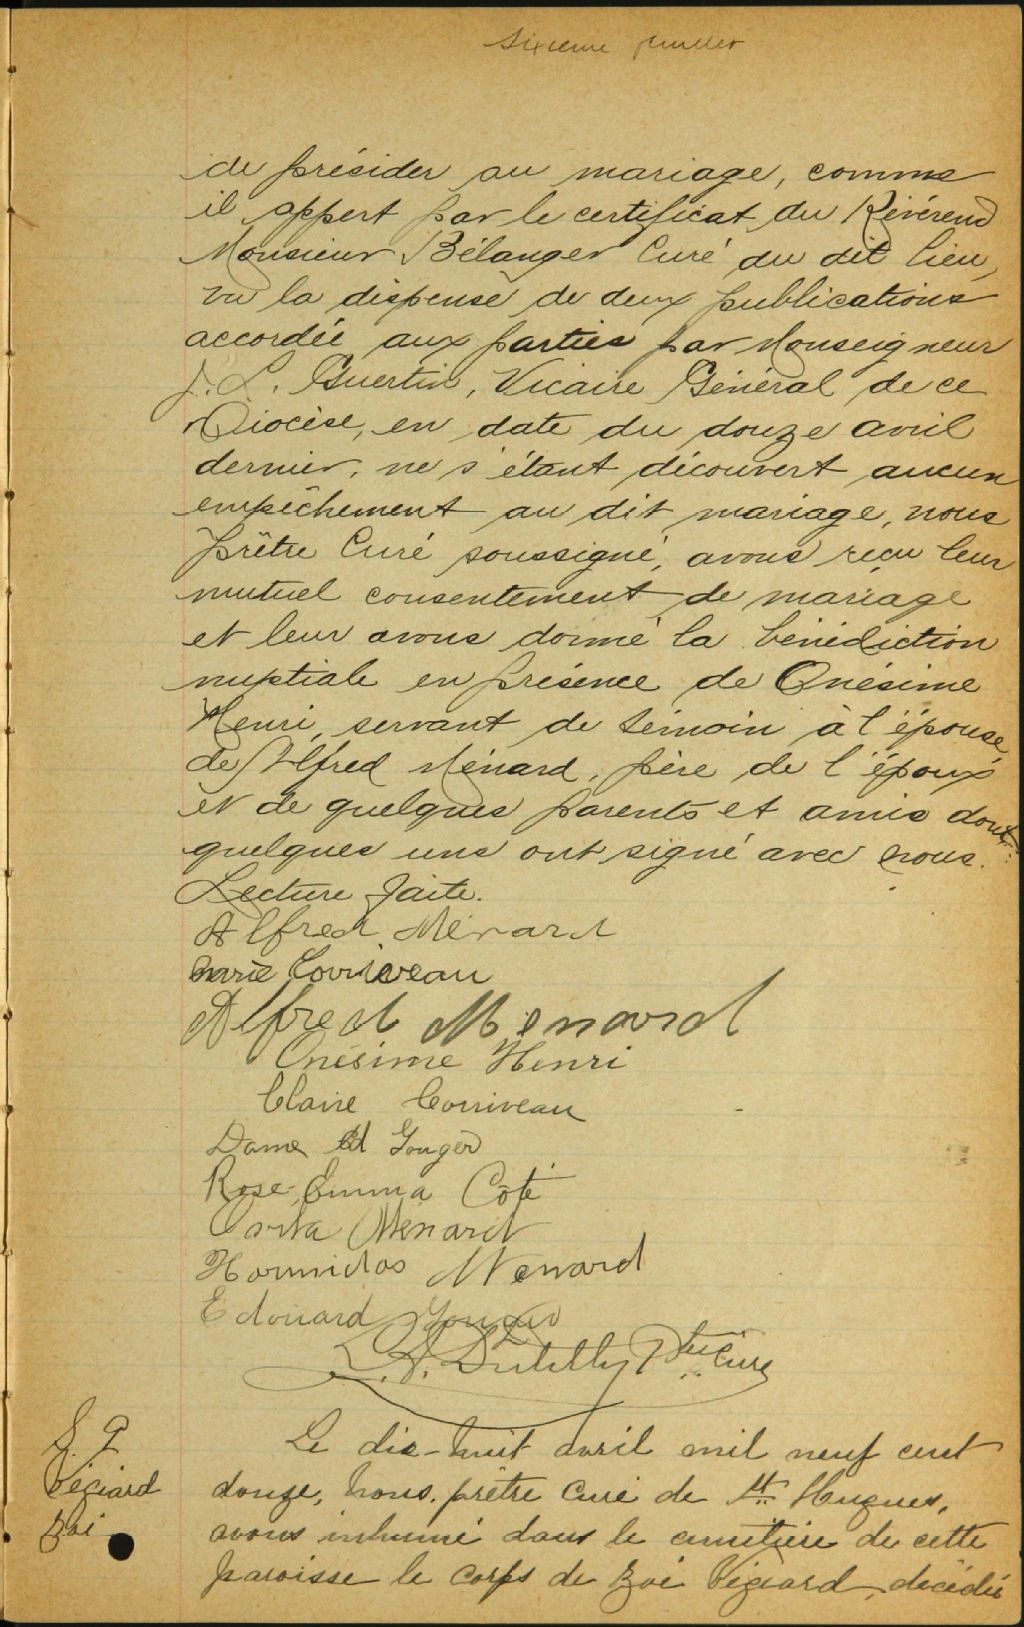 Sixième feuillet
de présider au mariage, comme
il appert par le certificat du Révérend
Monsieur Bélanger Curé du dit lieu,
vu la dispense de deux publications
accordée aux parties par Monseigneur
J. L. Guertin, Vicaire Général de ce
Diocèse, en date du douze avril
dernier, ne s'étant découvert aucun
empêchement au dit mariage, nous
prêtre Curé soussigné, avons reçu leur
mutuel consentement de mariage
et leur avons donné la bénédiction
nuptiale en présence de Onésime
Henri, servant de témoin à l'épouse,
de Alfred Ménard, père de l'époux
et de quelques parents et amis dont
quelques uns ont signé avec nous.
Lecture faite.
Alfred Ménard
Marie Corriveau
Alfred Menard
Onésime Henri
Claire Corriveau
Dame Ed Gouger
Rose-Emma Côté
Menard
Hormidas Menard
Edouard Gouger
L. A. Dutilly Ptre Curé
S. 9
Végiard
Zoé
Le dix-huit avril mil neuf cent
douze, nous, prêtre curé de St. Hugues,
avons inhumé dans le cimetière de cette
paroisse le corps de Zoé Végiard, décédée